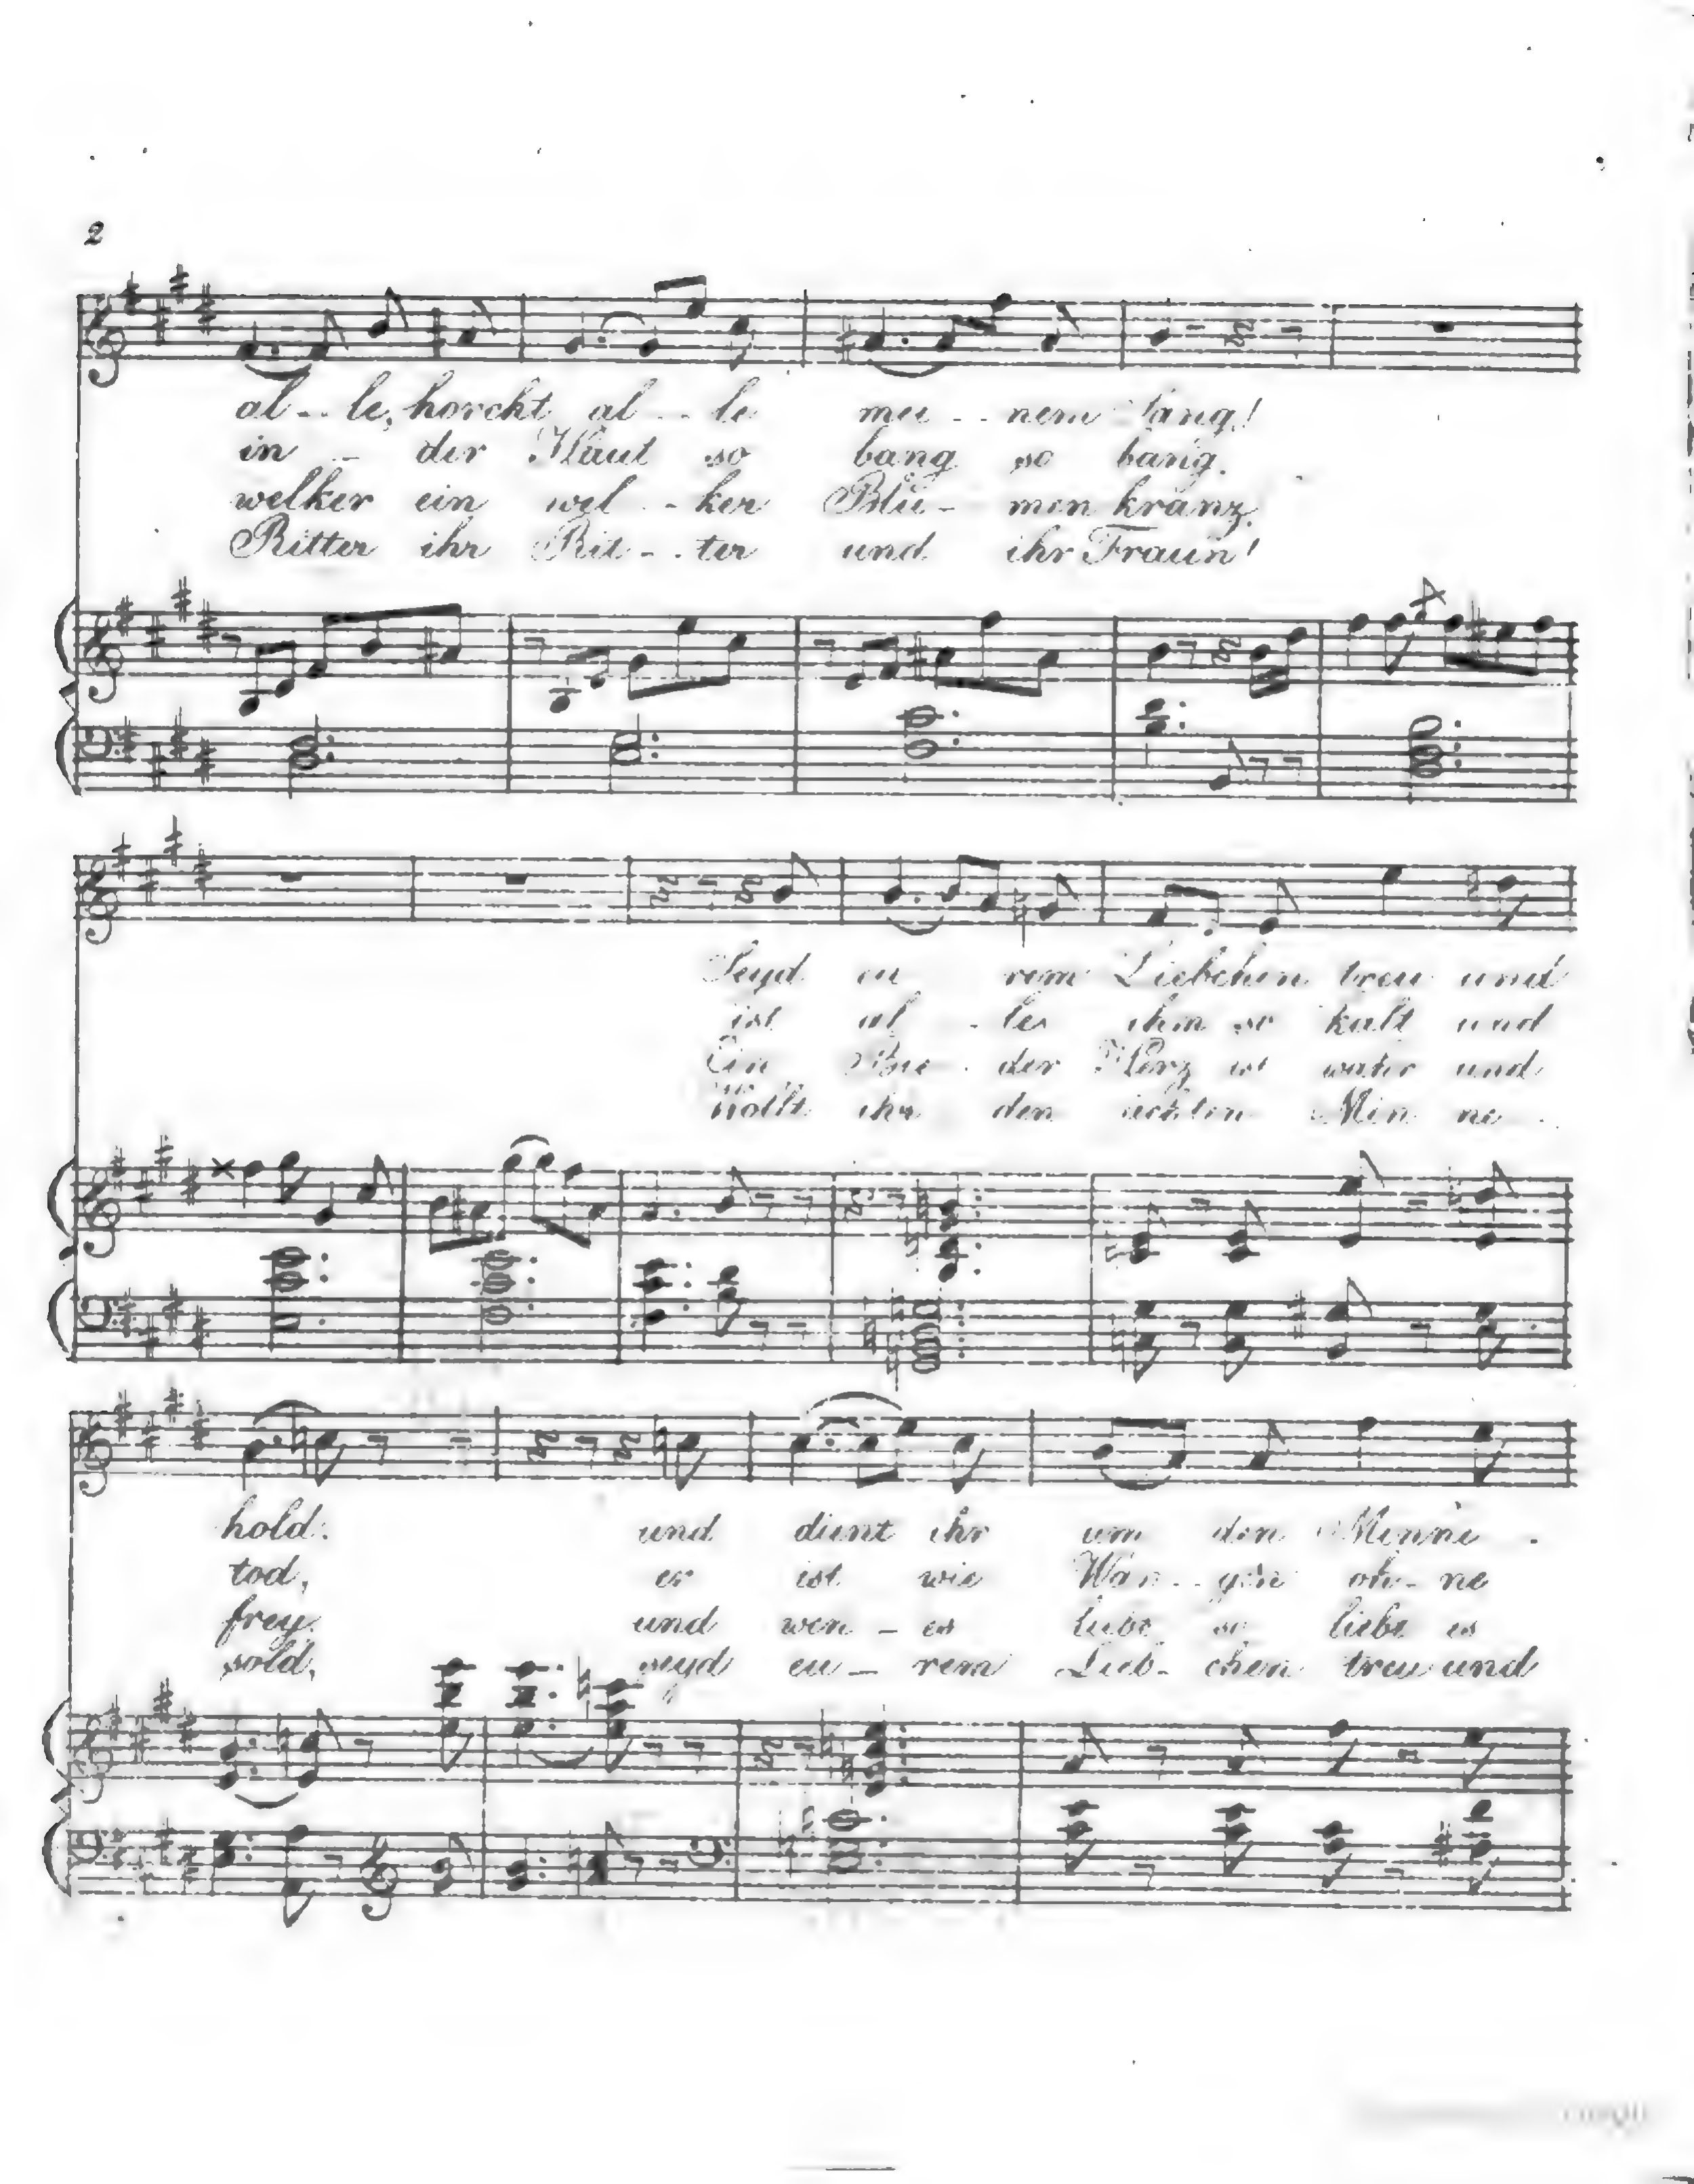 2
al -- le, horcht al -- le mei -- nem Sang!
in - der Haut so bang so bang.
welker ein wel -- ker Blu- men kranz.
Ritter ihr Rit -- ter und ihr Fraun!
Seyd eu rem Liebchen treu und
ist al - les ihm so kalt und
Ein Bie - der Herz ist wahr und
Wollt ihr den ächten Min ne -
hold. und dient ihr um den Minne -
tod, er ist wie Wan -- gen oh - ne
frey. und wen - es liebt so liebt es
sold, seyd eu - rem Lieb- chen treu und